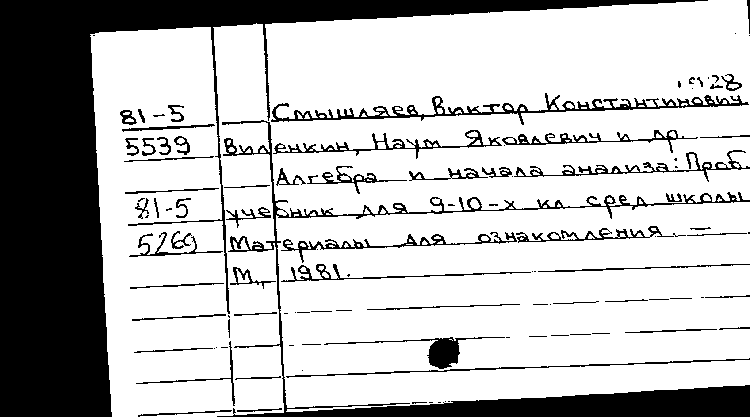 1928
81-5 Смышляев, Виктор Константинович
5539 Виленкин, Наум Яковлевич и др.
Алгебра и начала анализа: Проб.
81-5 учебник для 9-10-х кл. сред школы
5269 Материалы для ознакомления. —
М., 1981.